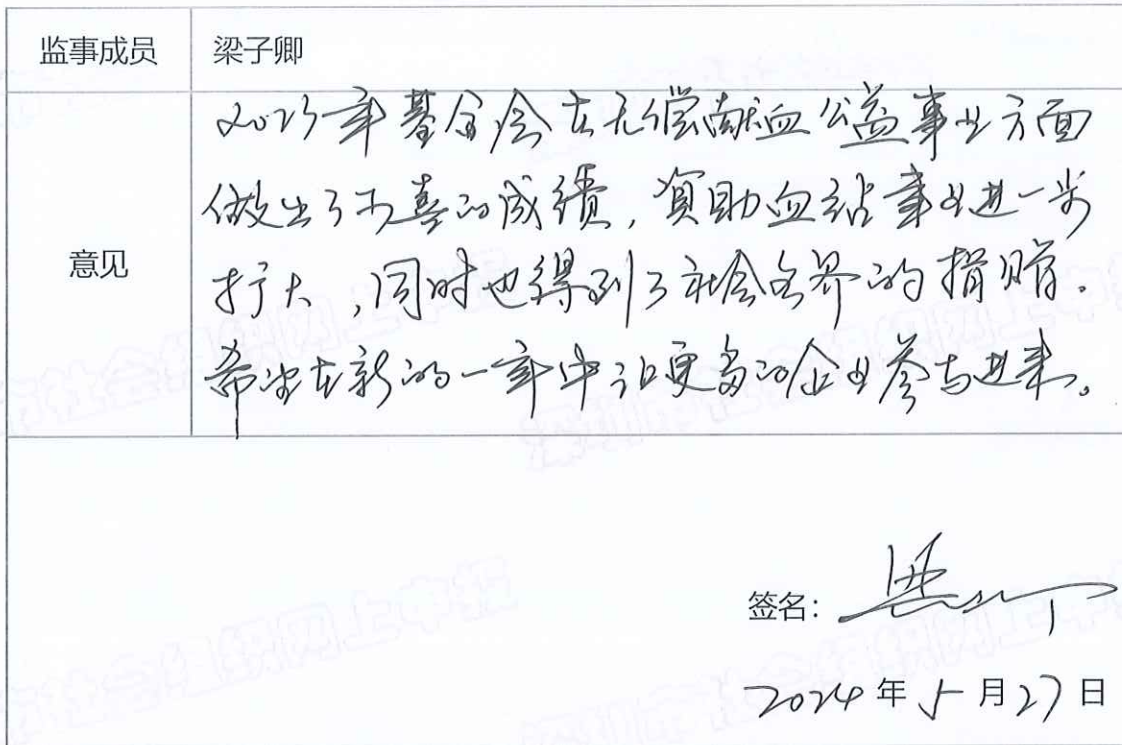 监事成员 梁子卿
意见
2023年基金会在无偿献血公益事业方面
做出了不喜的成绩,资助血站事业进一步
扩大,同时也得到了社会各界的捐赠。
希望在新的一年中让更多的企业参与进来。
签名:
2024年5月27日